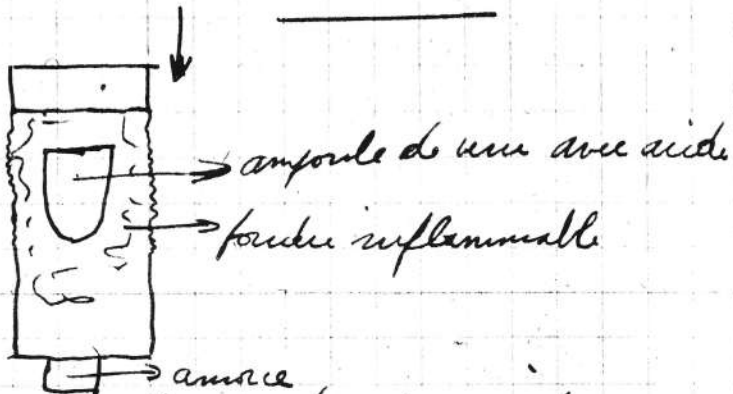 ampoule de verre avec acide
poudre inflammable
amorce